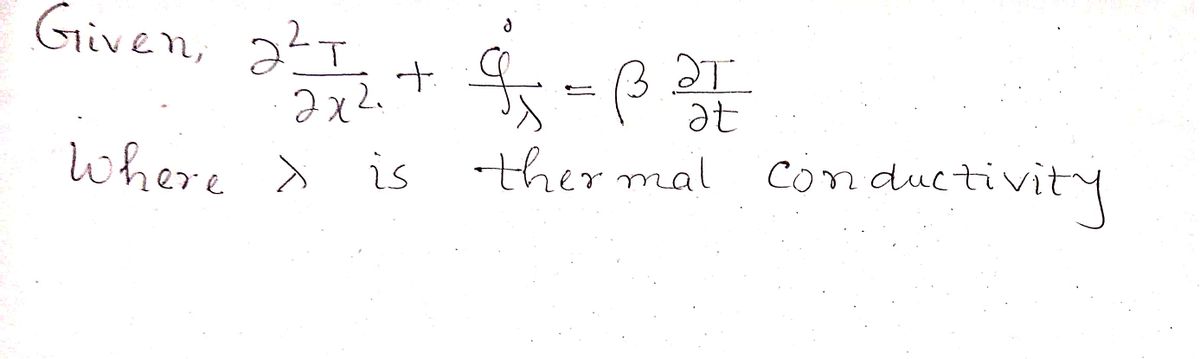 Given, ∂²T/∂x² + q̇/λ = β ∂T/∂t
where λ is thermal conductivity